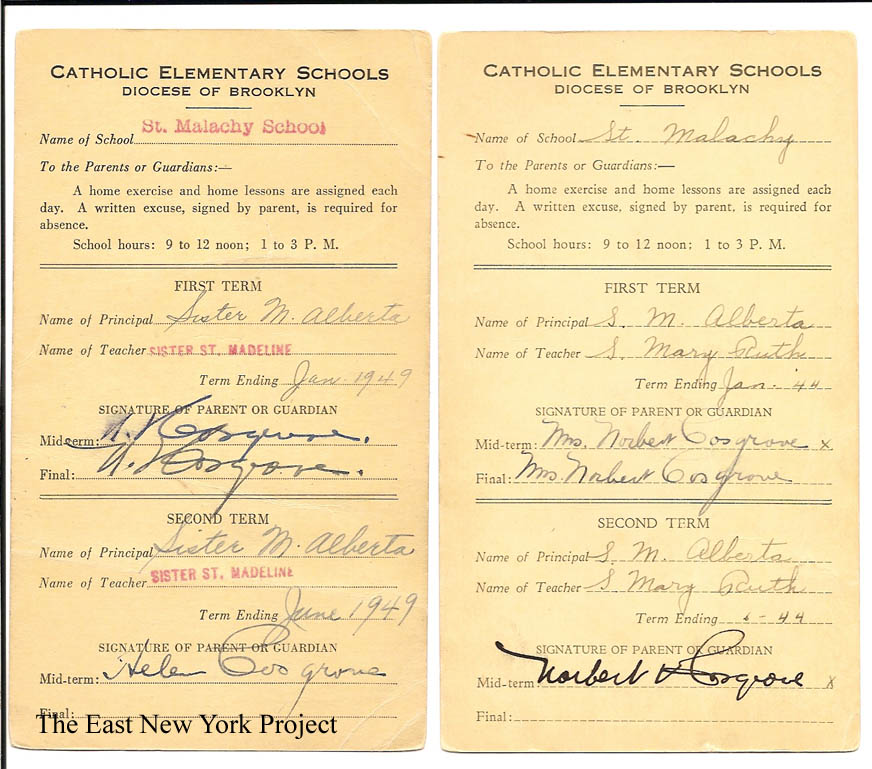 CATHOLIC ELEMENTARY SCHOOLS
DIOCESE OF BROOKLYN
Name of School St. Malachy School
To the Parents or Guardians:—
A home exercise and home lessons are assigned each
day. A written excuse, signed by parent, is required for
absence.
School hours: 9 to 12 noon; 1 to 3 P. M.
FIRST TERM
Name of Principal Sister M. Alberta
Name of Teacher SISTER ST. MADELINE
Term Ending Jan. 1949
SIGNATURE OF PARENT OR GUARDIAN
Mid-term: N. V. Cosgrove.
Final: N. V. Cosgrove.
SECOND TERM
Name of Principal Sister M. Alberta
Name of Teacher SISTER ST. MADELINE
Term Ending June 1949
SIGNATURE OF PARENT OR GUARDIAN
Mid-term: Helen Cosgrove
Final:
The East New York Project
CATHOLIC ELEMENTARY SCHOOLS
DIOCESE OF BROOKLYN
Name of School St. Malachy
To the Parents or Guardians:—
A home exercise and home lessons are assigned each
day. A written excuse, signed by parent, is required for
absence.
School hours: 9 to 12 noon; 1 to 3 P. M.
FIRST TERM
Name of Principal S. M. Alberta
Name of Teacher S. Mary Ruth
Term Ending Jan. '44
SIGNATURE OF PARENT OR GUARDIAN
Mid-term: Mrs. Norbert Cosgrove x
Final: Mrs Norbert Cosgrove
SECOND TERM
Name of Principal S. M. Alberta
Name of Teacher S Mary Ruth
Term Ending 6-44
SIGNATURE OF PARENT OR GUARDIAN
Mid-term: Norbert V Cosgrove x
Final: